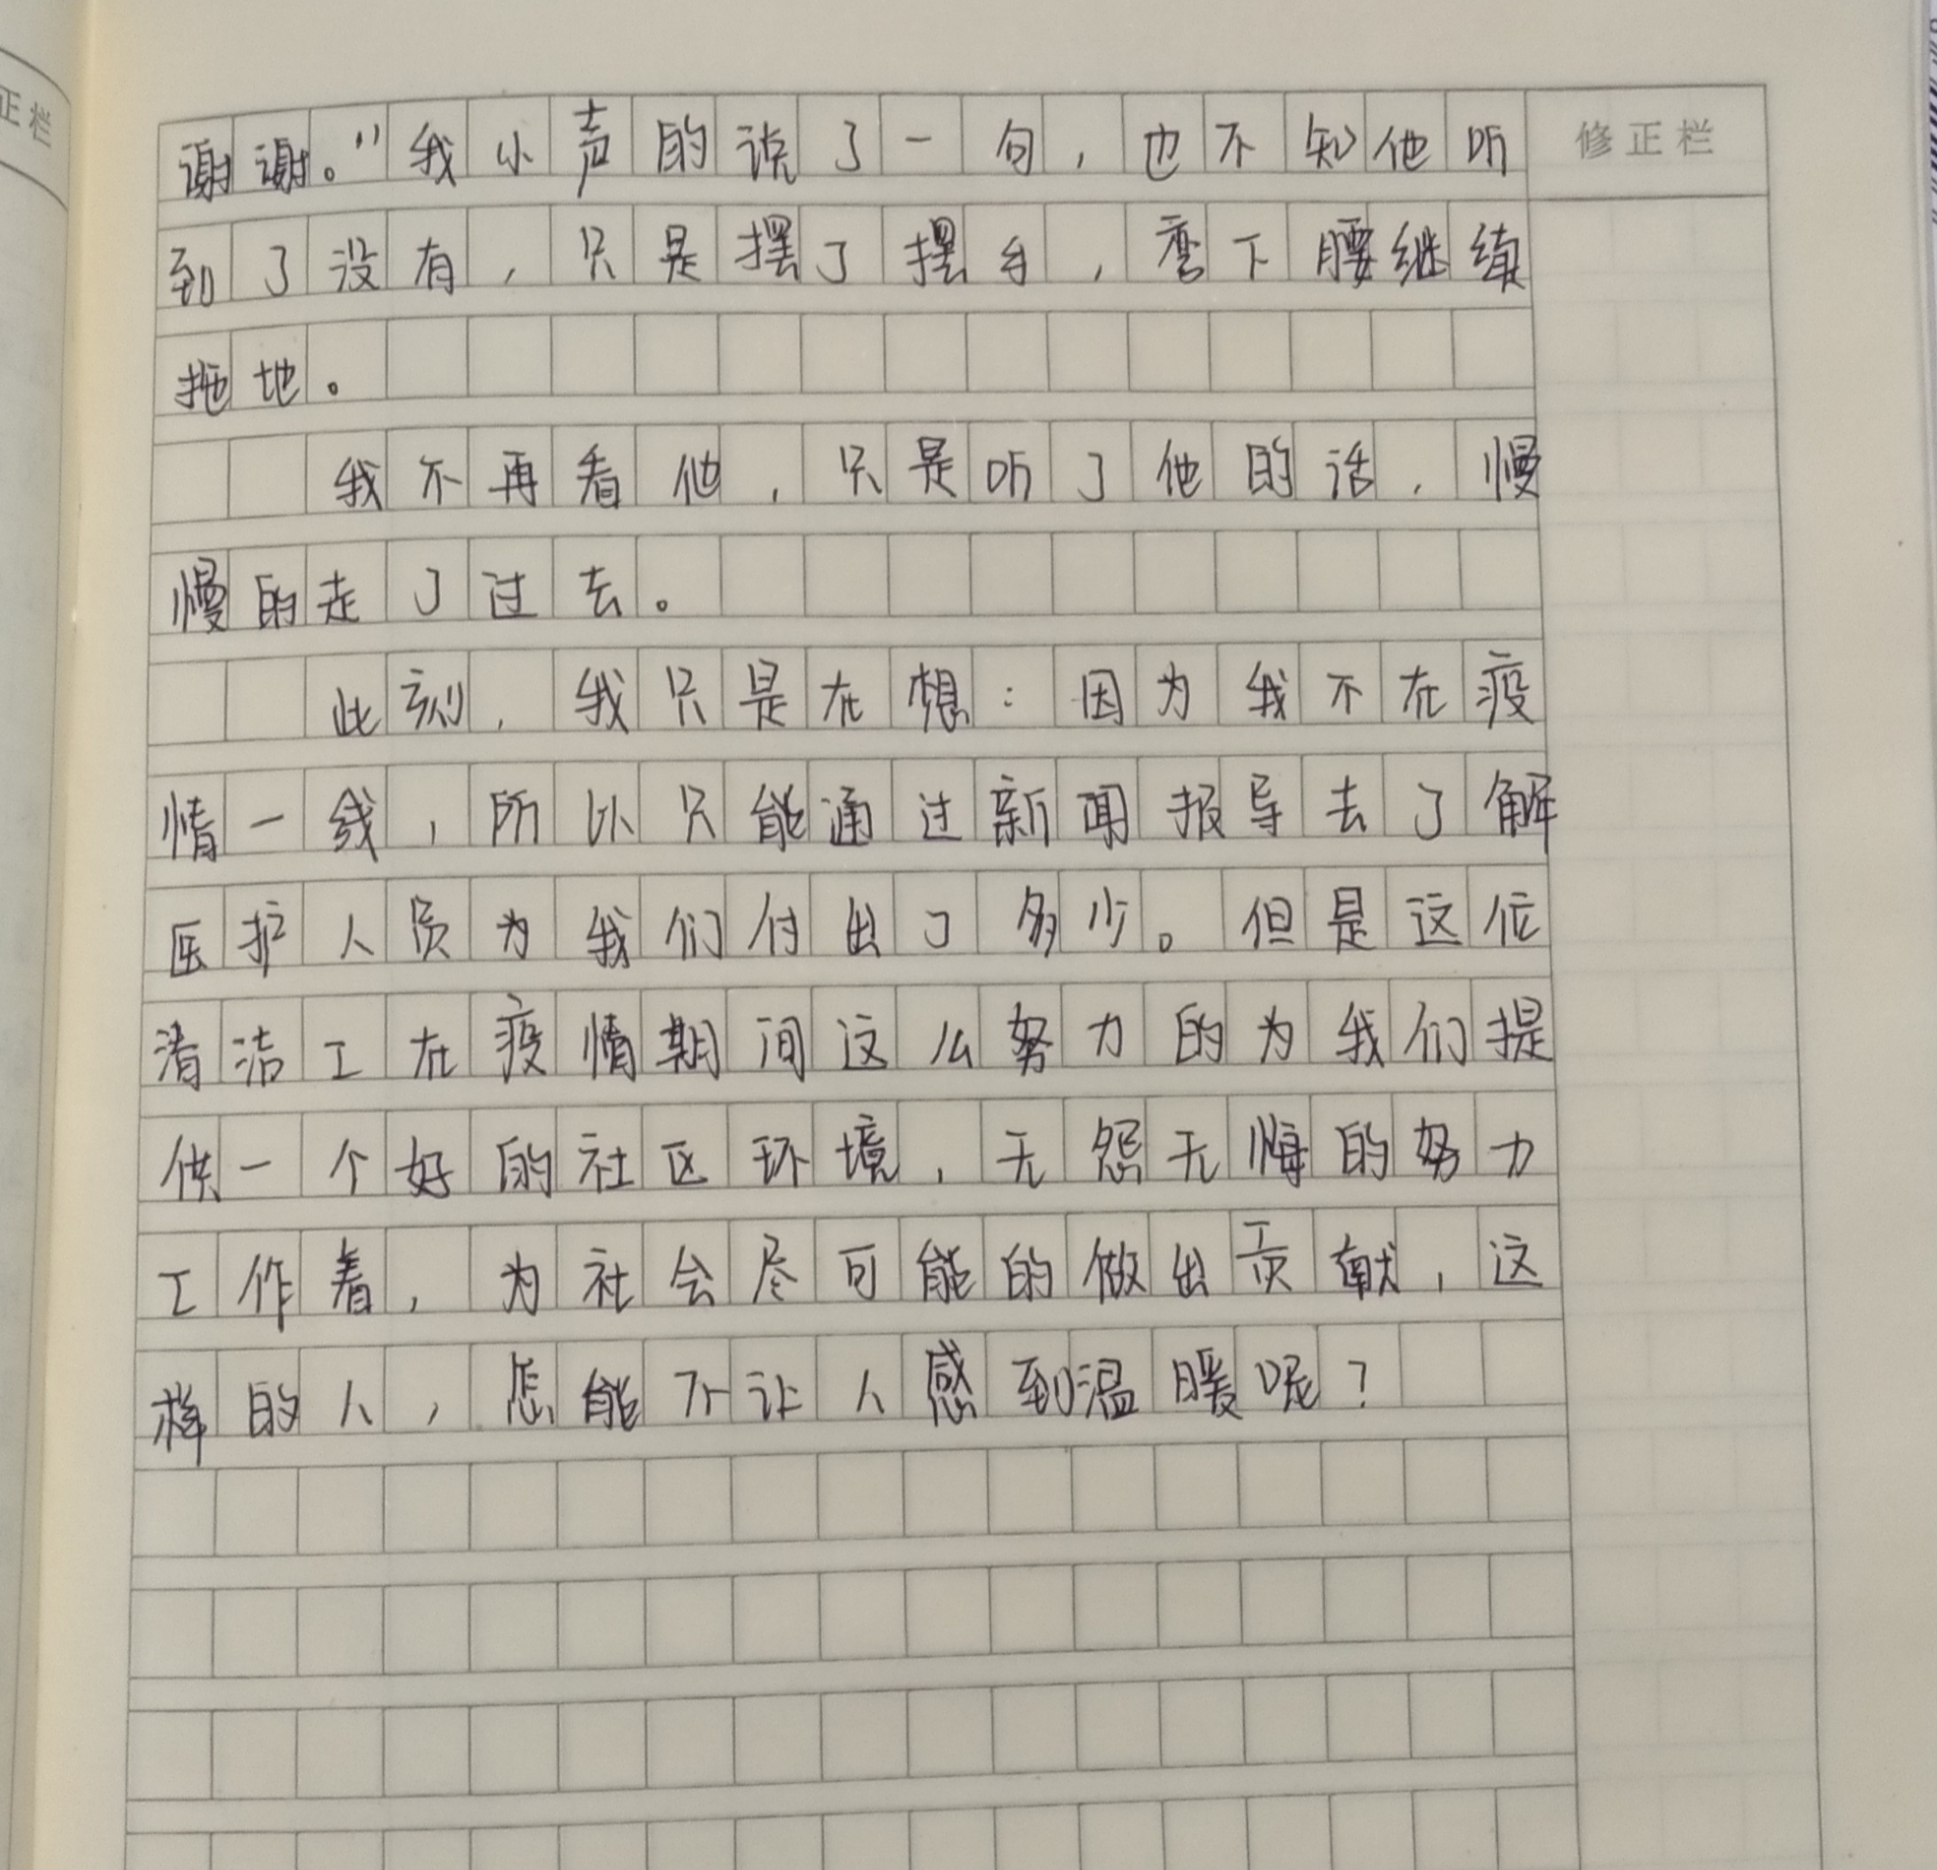 正栏
修正栏
谢谢。”我小声的说了一句，也不知他听
到了没有，只是摆了摆手，弯下腰继续
拖地。
我不再看他，只是听了他的话，慢
慢的走了过去。
此刻，我只是在想：因为我不在疫
情一线，所以只能通过新闻报导去了解
医护人员为我们付出了多少。但是这位
清洁工在疫情期间这么努力的为我们提
供一个好的社区环境，无怨无悔的努力
工作着，为社会尽可能的做出贡献，这
样的人，怎能不让人感到温暖呢？